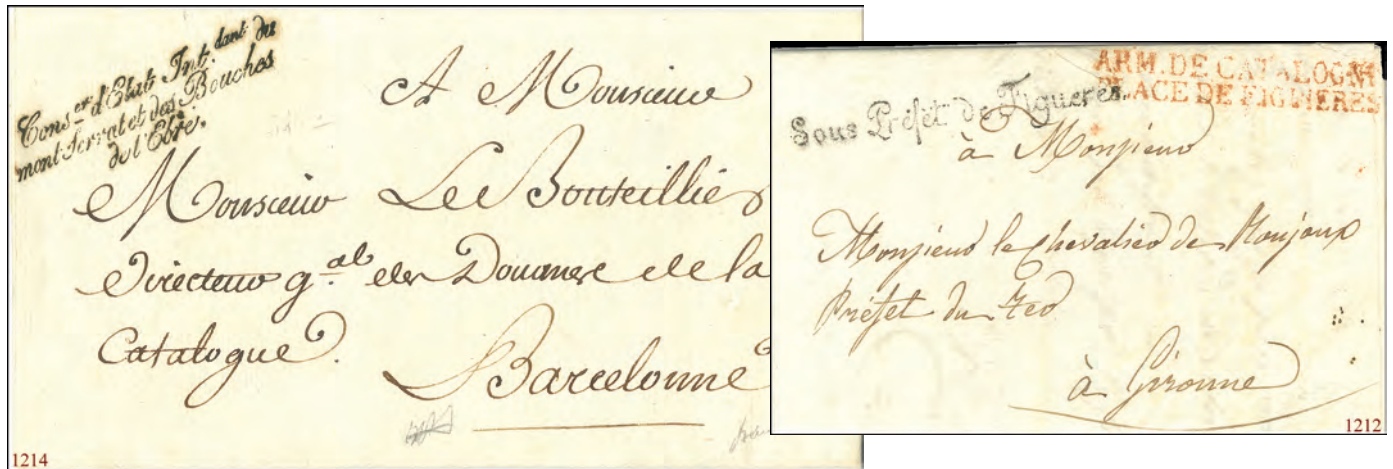 Cons.er d'Etat Int.dant du
mont Serrat et des Bouches
de l'Ebre.
A Monsieur
Monsieur Le Bouteillier
Directeur g.al des Douanes de la
Catalogne.
Barcelonne
1214
ARM. DE CATALOGNE
PLACE DE FIGUIERES
Sous Préfet de Figueres.
à Monsieur
Monsieur le chevalier de Roujoux
Préfet du Ter
à Gironne
1212